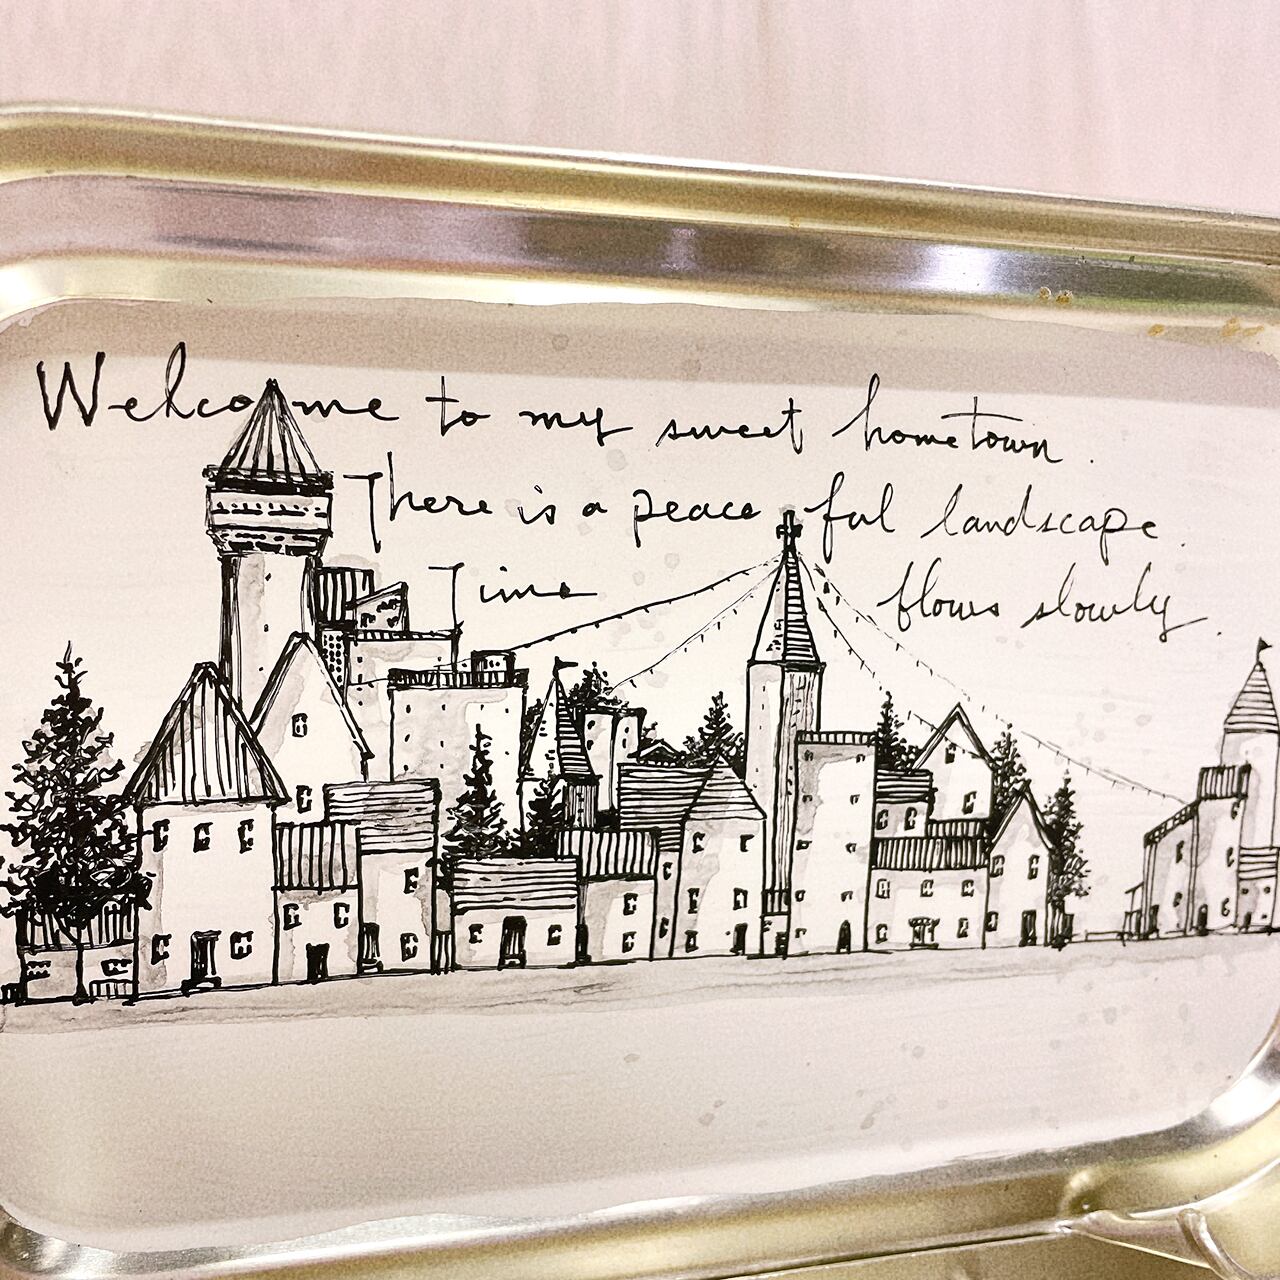 Welcome to my sweet hometown.
There is a peaceful landscape.
Time flows slowly.